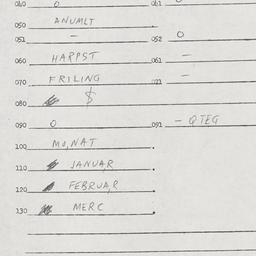 040 0 041 0
050 ANUMLT
051 - 052 0
060 HARPST 061 -
070 FRILING 071 -
080 $
090 0 091 - QTEG
100 MO,NAT
110 JANUAR
120 FEBRUAR
130 MERC